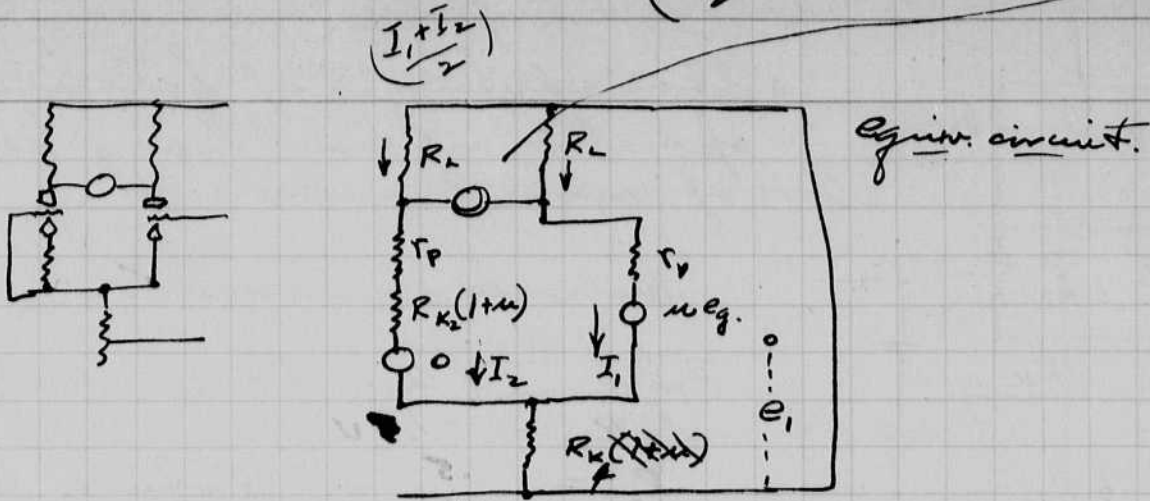 (I₁+I₂
2)
equiv. circuit.
R_L
R_L
r_p
r_p
R_K₂(1+μ)
μ e_g.
0
I₂
I₁
e₁
R_K